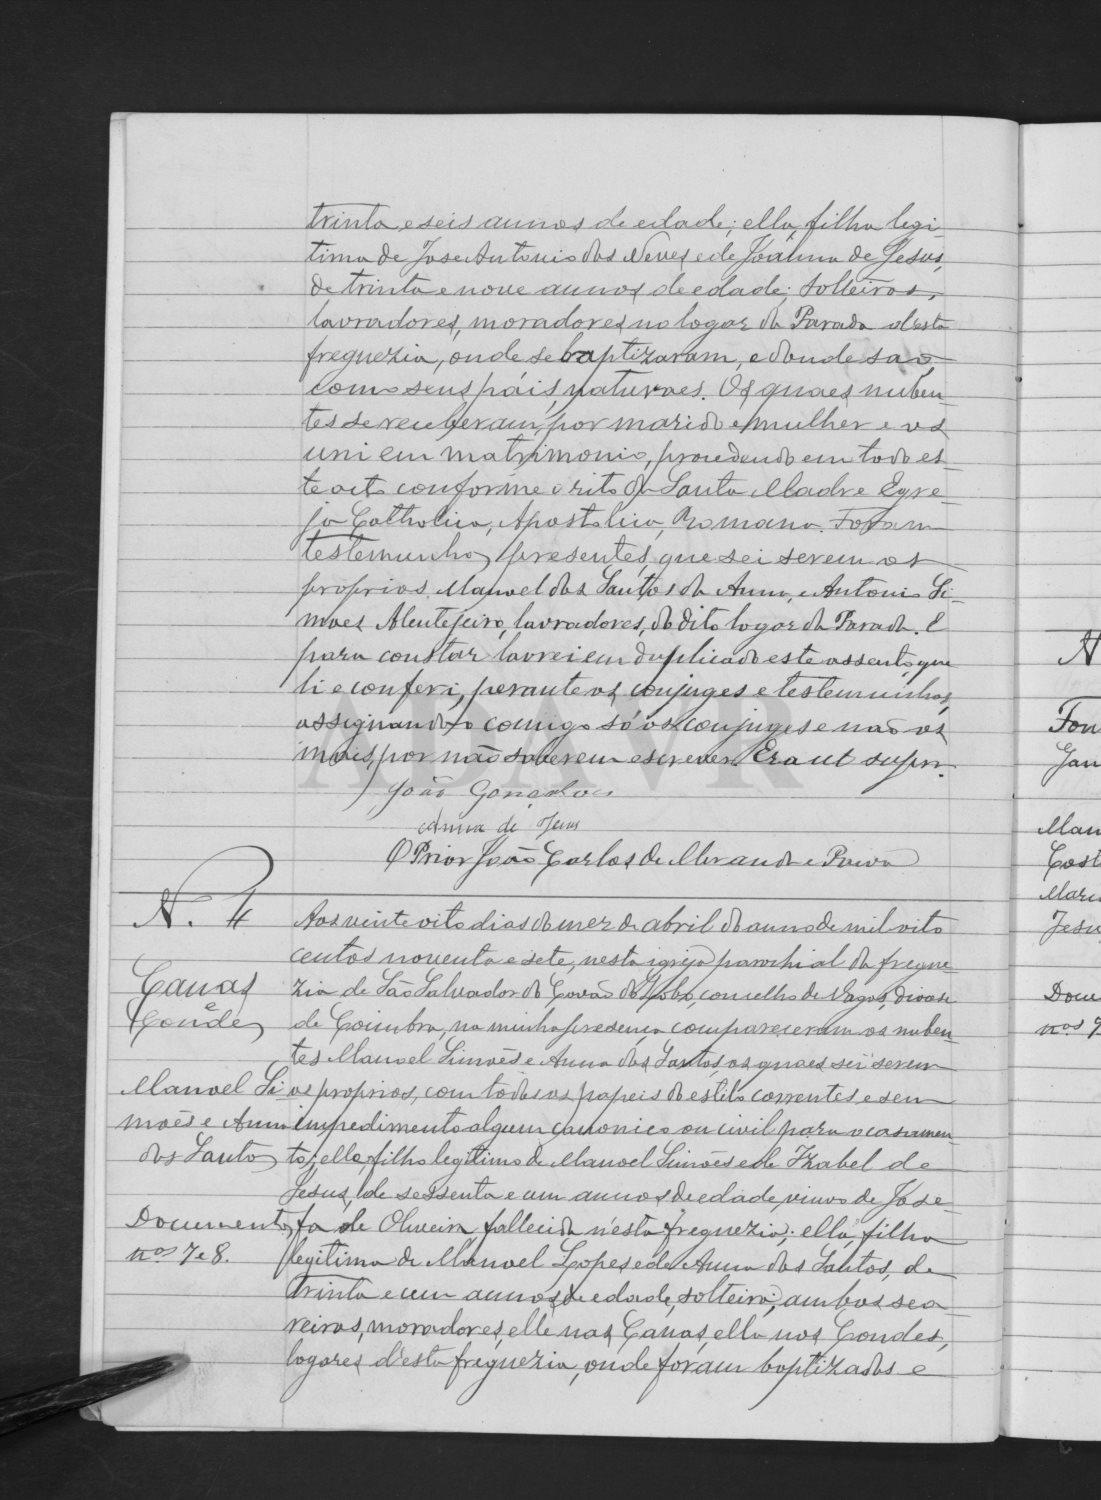 trinta e seis annos de edade; ella, filha legi-
tima de Jose Antonio das Neves e de Joanna de Jesus,
de trinta e nove annos de edade; solteiros,
lavradores, moradores no logar da Parada d'esta
freguezia, onde se baptizaram, e donde são,
como seus páis, naturaes. Os quaes nuben-
tes se receberam por marido e mulher e os
uni em matrimonio, procedendo em todo es-
te acto conforme o rito da Santa Madre Egre-
ja Catholica, Apostolica, Romana. Foram
testemunhas presentes, que sei serem os
proprios, Manoel dos Santos da Anna, e Antonio Si-
mões Alentejeiro, lavradores, do dito logar da Parada. E
para constar lavrei em duplicado este assento, que
li e conferi, perante os conjuges e testemunhas,
assignando-o comigo só os conjuges e não os
mais, por não saberem escrever. Era ut supra.
João Gonçalves
Anna de Jesus
O Prior João Carlos de Miranda e Paiva
N. 4
Canas
e
Condes
Manoel Si-
mões e Anna
dos Santos
Documentos
nos 7 e 8.
Aos vinte oito dias do mez de abril do anno de mil oito
centos noventa e sete, nesta igreja parochial da fregue-
zia de São Salvador do Covão do Lobo, concelho de Vagos, diocese
de Coimbra, na minha presença compareceram os nuben-
tes Manoel Simões e Anna dos Santos, os quaes sei serem
os proprios, com todos os papeis do estilo correntes e sem
impedimento algum canonico ou civil para o casamen-
to; elle, filho legitimo de Manoel Simões e de Izabel de
Jesus, de sessenta e um annos de edade, viuvo de Jose-
fa de Oliveira fallecida n'esta freguezia; ella, filha
legitima de Manoel Lopes e de Anna dos Santos, de
trinta e um annos de edade, solteira; ambos sea
reiros, moradores, elle nas Canas, ella nos Condes,
logares d'esta freguezia, onde foram baptizados e
ADAVR
N
Fon
Gan
Man
Cost
Mari
Jesu
Docu
nos 9